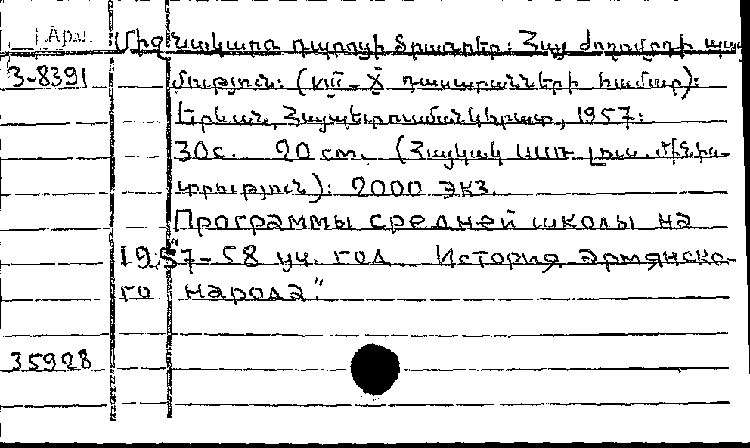 Арм. Միջնակարգ դպրոցի ծրագրեր: Հայ ժողովրդի պատ
3-8391 մություն: (VIII-X դասարանների համար):
Երևան, Հայպետուսմանկհրատ, 1957:
30с. 20 cm. (Հայկական ՍՍՌ լուս. մինիս-
տրություն): 2000 экз.
Программы средней школы на
1957-58 уч. год История армянско-
го народа."
35928